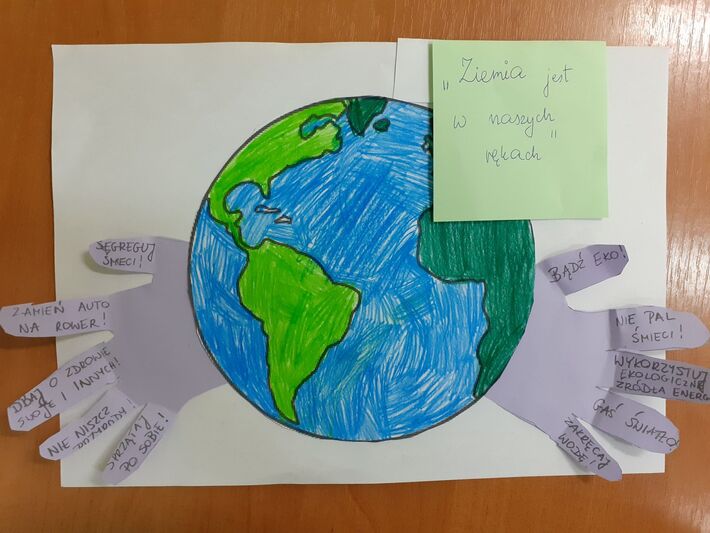 „Ziemia jest
w naszych
rękach"
SEGREGUJ
ŚMIECI!
ZAMIEŃ AUTO
NA ROWER!
DBAJ O ZDROWIE
SWOJE I INNYCH!
NIE NISZCZ
SPRZĄTAJ
PO SOBIE!
BĄDŹ EKO!
NIE PAL
ŚMIECI!
WYKORZYSTUJ
EKOLOGICZNE
ŹRÓDŁA ENERGI
GAŚ ŚWIATŁO!
ZAKRĘCAJ
WODĘ!